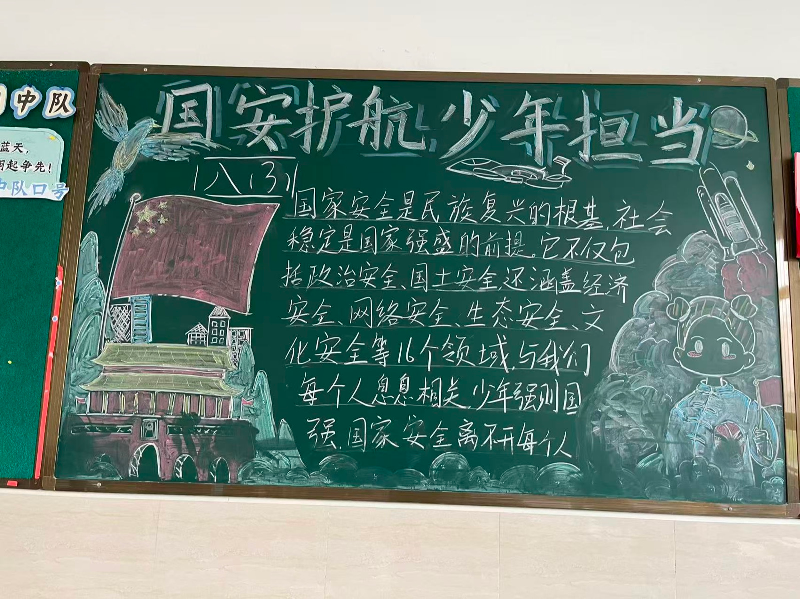 中队
蓝天,
争先!
中队口号
国安护航少年担当
八(3)
国家安全是民族复兴的根基,社会
稳定是国家强盛的前提,它不仅包
括政治安全、国土安全,还涵盖经济
安全、网络安全、生态安全、文
化安全等16个领域,与我们
每个人息息相关,少年强则国
强,国家安全离不开每个人